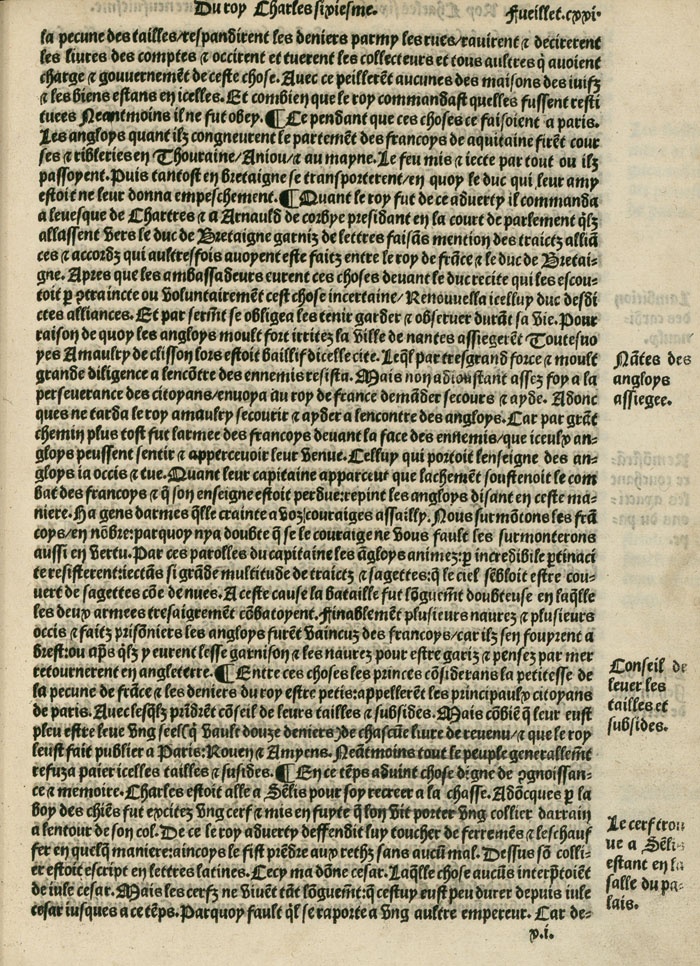 Du roy Charles sixiesme. Fueillet.cxxi.
la pecune des tailles/respandirent les deniers parmy les rues/rauirent ⁊ decirerent
les liures des comptes ⁊ occirent et tuerent les collecteurs et tous aultres q̃ auoient
charge ⁊ gouuernemẽt de ceste chose. Auec ce peillerẽt aucunes des maisons des iuifz
⁊ les biens estans en icelles. Et combien que le roy commandast quelles fussent resti
tuees Neantmoins il ne fut obey. ¶ Ce pendant que ces choses ce faisoient a paris.
Les angloys quant ilz congneurent le partemẽt des francoys de aquitaine firẽt cour
ses ⁊ ribleries en Thouraine/Aniou/⁊ au mayne. Le feu mis ⁊ iecte par tout ou ilz
passoyent. Puis tantost en bretaigne se transporterent/en quoy le duc qui leur amy
estoit ne leur donna empeschement. ¶ Quant le roy fut de ce aduerty il commanda
a leuesque de Chartres ⁊ a Arnauld de corbye presidant en la court de parlement q̃lz
allassent vers le duc de Bretaigne garniz de lettres faisãs mention des traictz alliã
ces ⁊ accordz qui aultresfois auoyent este faitz entre le roy de frãce ⁊ le duc de Bretai-
gne. Apres que les ambassadeurs eurent ces choses deuant le duc recite qui les escou-
toit ꝑ ꝯtraincte ou voluntairemẽt cest chose incertaine/Renouuella icelluy duc desdi
ctes alliances. Et par sermẽt se obligea les tenir garder ⁊ obseruer durãt sa vie. Pour
raison de quoy les angloys moult fort irritez la ville de nantes assiegerẽt Toutesuo
yes Amaulry de clisson lors estoit baillif dicelle cite. Leq̃l par tresgrand force ⁊ moult
grande diligence a lencõtre des ennemis resista. Mais non adioustant assez foy a la
perseuerance des citoyans/enuoya au roy de france demãder secours ⁊ ayde. Adonc
ques ne tarda le roy amaulry secourir ⁊ ayder a lencontre des angloys. Car par grãt
chemin plus tost fut larmee des francoys deuant la face des ennemis/que iceulx an-
gloys peussent sentir ⁊ apperceuoir leur venue. Celluy qui portoit lenseigne des an-
gloys ia occis ⁊ tue. Quant leur capitaine apparceut que lachemẽt soustenoit le com
bat des francoys ⁊ q̃ son enseigne estoit perdue:repint les angloys disant en ceste ma-
niere. Ha gens darmes q̃lle crainte a voz couraiges assailly. Nous surmõtons les frã
coys/en nõbre:parquoy nya doubte q̃ se le couraige ne vous fault les surmonterons
aussi en vertu. Par ces parolles du capitaine les ãgloys animez:ꝑ incredibile ꝑtinaci
te resisterent:iectãs si grãde multitude de traictz ⁊ sagettes:q̃ le ciel sẽbloit estre cou-
uert de sagettes cõe de nues. A ceste cause la bataille fut lõguemẽt doubteuse en laq̃lle
les deux armees tresaigrement cõbatoyent. Finablemẽt plusieurs naurez ⁊ plusieurs
occis ⁊ faitz prisõniers les angloys furẽt vaincuz des francoys/car ilz sen fouyrent a
brest:ou apr̃s q̃lz y eurent lesse garnison ⁊ les naurez pour estre gariz ⁊ pensez par mer
retournerent en angleterre. ¶ Entre ces choses les princes cõsiderans la petitesse de
la pecune de frãce ⁊ les deniers du roy estre petis:appellerẽt les principaulx citoyans
de paris. Auec lesq̃lz prĩdrẽt cõseil de leurs tailles ⁊ subsides. Mais cõbiẽ q̃ leur eust
pleu estre leue vng seel q̃ vault douze deniers de chascũe liure de reuenu/⁊ que le roy
leust fait publier a Paris:Rouen ⁊ Amyens. Neãtmoins tout le peuple generallemẽt
refuza paier icelles tailles ⁊ susides. ¶ En ce tẽps aduint chose digne de ꝯgnoissan-
ce ⁊ memoire. Charles estoit alle a Sẽlis pour soy recreer a la chasse. Adõcques ꝑ la
boy des chiẽs fut excitez vng cerf ⁊ mis en fuyte q̃ lon vit porter vng collier darrain
a lentour de son col. De ce le roy aduerty deffendit luy toucher de ferremẽs ⁊ leschauf
fer en quelq̃ maniere:aincoys le fist prẽdre aux rethz sans aucũ mal. Dessus sõ colli-
er estoit escript en lettres latines. Cecy ma dõne cesar. Laq̃lle chose aucũs interp̃toiẽt
de iule cesar. Mais les cerfz ne viuẽt tãt lõguemẽt:q̃ cestuy eust peu durer depuis iule
cesar iusques a ce tẽps. Parquoy fault q̃l se raporte a vng aultre empereur. Car de-
x.i.
Nãtes des
angloys
assiegee.
Conseil de
leuer les
tailles et
subsides.
Le cerf trou
ue a Sẽlis
estant en la
salle du pa-
lais.